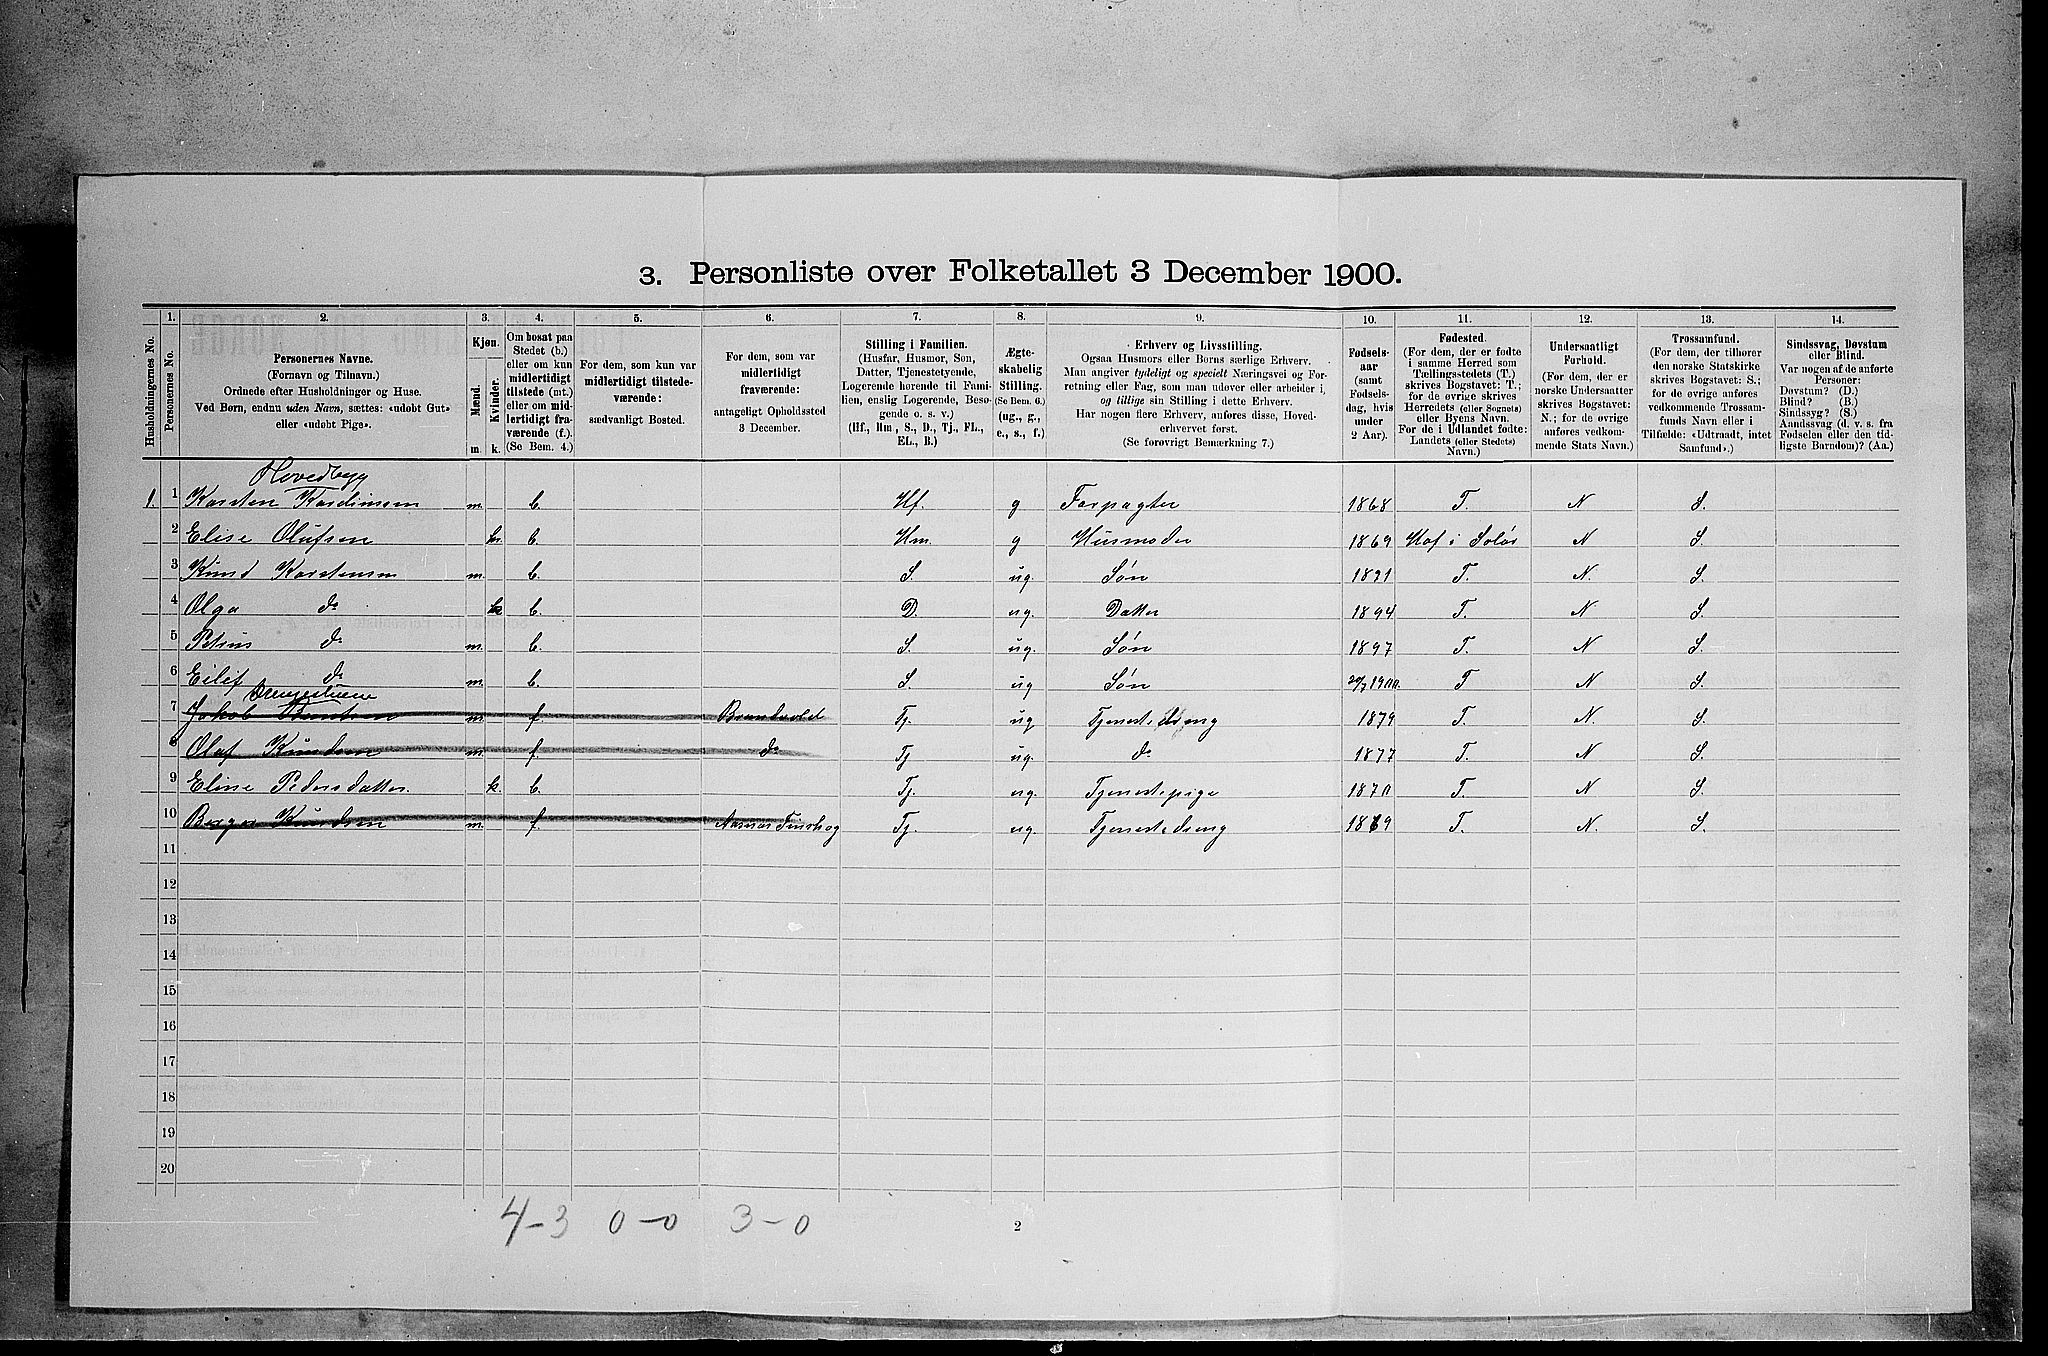 3. Personliste over Folketallet 3 December 1900.
1. 2. 3. 4. 5. 6. 7. 8. 9. 10. 11. 12. 13. 14.
Husholdningernes No.
Personernes No.
Personernes Navne.
(Fornavn og Tilnavn.)
Ordnede efter Husholdninger og Huse.
Ved Børn, endnu uden Navn, sættes: «udøbt Gut»
eller «udøbt Pige».
Kjøn.
Mænd.
Kvinder.
m. k.
Om bosat paa
Stedet (b.)
eller om kun
midlertidigt
tilstede (mt.)
eller om mid-
lertidigt fra-
værende (f.).
(Se Bem. 4.)
For dem, som kun var
midlertidigt tilstede-
værende:
sædvanligt Bosted.
For dem, som var
midlertidigt
fraværende:
antageligt Opholdssted
3 December.
Stilling i Familien.
(Husfar, Husmor, Søn,
Datter, Tjenestetyende,
Logerende hørende til Fami-
lien, enslig Logerende, Besø-
gende o. s. v.)
(Hf., Hm., S., D., Tj., FL.,
EL., B.)
Ægte-
skabelig
Stilling.
(Se Bem. 6.)
(ug., g.,
e., s., f.)
Erhverv og Livsstilling.
Ogsaa Husmors eller Børns særlige Erhverv.
Man angiver tydeligt og specielt Næringsvei og For-
retning eller Fag, som man udøver eller arbeider i,
og tillige sin Stilling i dette Erhverv.
Har nogen flere Erhverv, anføres disse, Hoved-
erhvervet først.
(Se forøvrigt Bemærkning 7.)
Fødsels-
aar
(samt
Fødsels-
dag, hvis
under
2 Aar).
Fødested.
(For dem, der er fødte
i samme Herred som
Tællingsstedets (T.)
skrives Bogstavet: T.;
for de øvrige skrives
Herredets (eller Sognets)
eller Byens Navn.
For de i Udlandet fødte:
Landets (eller Stedets)
Navn.)
Undersaatligt
Forhold.
(For dem, der er
norske Undersaatter
skrives Bogstavet:
N.; for de øvrige
anføres vedkom-
mende Stats Navn.)
Trossamfund.
(For dem, der tilhører
den norske Statskirke
skrives Bogstavet: S.;
for de øvrige anføres
vedkommende Trossam-
funds Navn eller i
Tilfælde: «Udtraadt, intet
Samfund».)
Sindssvag, Døvstum
eller Blind.
Var nogen af de anførte
Personer:
Døvstum? (D.)
Blind? (B.)
Sindssyg? (S.)
Aandssvag (d. v. s. fra
Fødselen eller den tid-
ligste Barndom)? (Aa.)
Hovedbygg
1. 1 Karsten Kardinsen m. b. Hf. g Forpagter 1868 T. N S.
2 Elise Olufsen k. b. Hm. g Husmoder 1869 Hof i Solør N S.
3 Knud Karstensen m. b. S. ug. Søn 1891 T. N. S.
4 Olga do k b. D. ug. Datter 1894 T. N S.
5 Petrus do m. b. S. ug. Søn 1897 T. N S.
6 Eilef do m. b. S. ug Søn 20/7 1900. T N S.
Drengestuen
7 Jakob Berntsen m. f. Brandvold Tj. ug Tjenestedreng 1879 T. N. S.
8 Olaf Knudsen m. f. do Tj ug. do 1877 T. N S.
9 Eline Pedersdatter k. b. Tj. ug. Tjenestepige 1870 T. N S.
10 Berger Knudsen m. f. Aasnes Finskog Tj. ug. Tjenestedreng 1869 T. N. S.
11
12
13
14
15
16
17
18
19
20
4-3 0-0 3-0
2